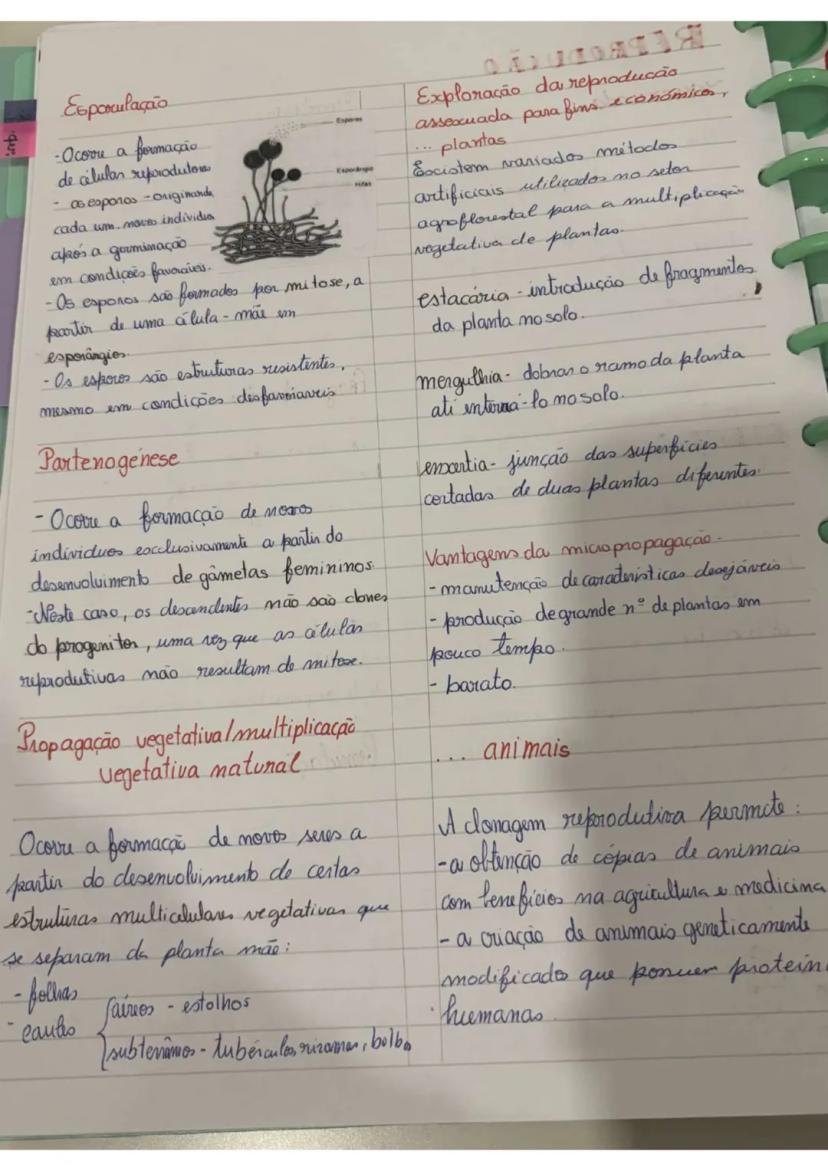 Esporulação
- Ocorre a formação
de células reprodutoras
- os esporos - originando
cada um novo individuo
após a germinação
em condições favoráveis.
Esporos
Esporângio
Hifas
- Os esporos são formados por mitose, a
partir de uma célula-mãe em
esporângios.
- Os esporos são estruturas resistentes,
mesmo em condições desfavoráveis
Partenogénese
- Ocorre a formação de novos
individuos exclusivamente a partir do
desenvolvimento de gâmetas femininos.
- Neste caso, os descendentes não são clones
do progenitor, uma vez que as células
reprodutivas não resultam de mitose.
Propagação vegetativa/multiplicação
vegetativa natural
Ocorre a formação de novos seres a
partir do desenvolvimento de certas
estruturas multicelulares vegetativas que
se separam da planta mãe:
- folhas
- caules
aéreos - estolhos
subterrâneos - tubérculos, rizomas, bolbo
REPRODUÇÃO
Exploração da reprodução
assexuada para fins económicos,
... plantas
Existem variados métodos
artificiais utilizados no setor
agroflorestal para a multiplicação
vegetativa de plantas.
estacaria - introdução de fragmentos
da planta no solo.
mergulhia - dobrar o ramo da planta
até enterrá-lo no solo.
enxertia - junção das superfícies
cortadas de duas plantas diferentes.
Vantagens da micropropagação.
- manutenção de características desejáveis
- produção de grande nº de plantas em
pouco tempo.
- barato.
... animais
A clonagem reprodutiva permite:
- a obtenção de cópias de animais
com benefícios na agricultura e medicina
- a criação de animais geneticamente
modificados que possuem proteín
humanas.